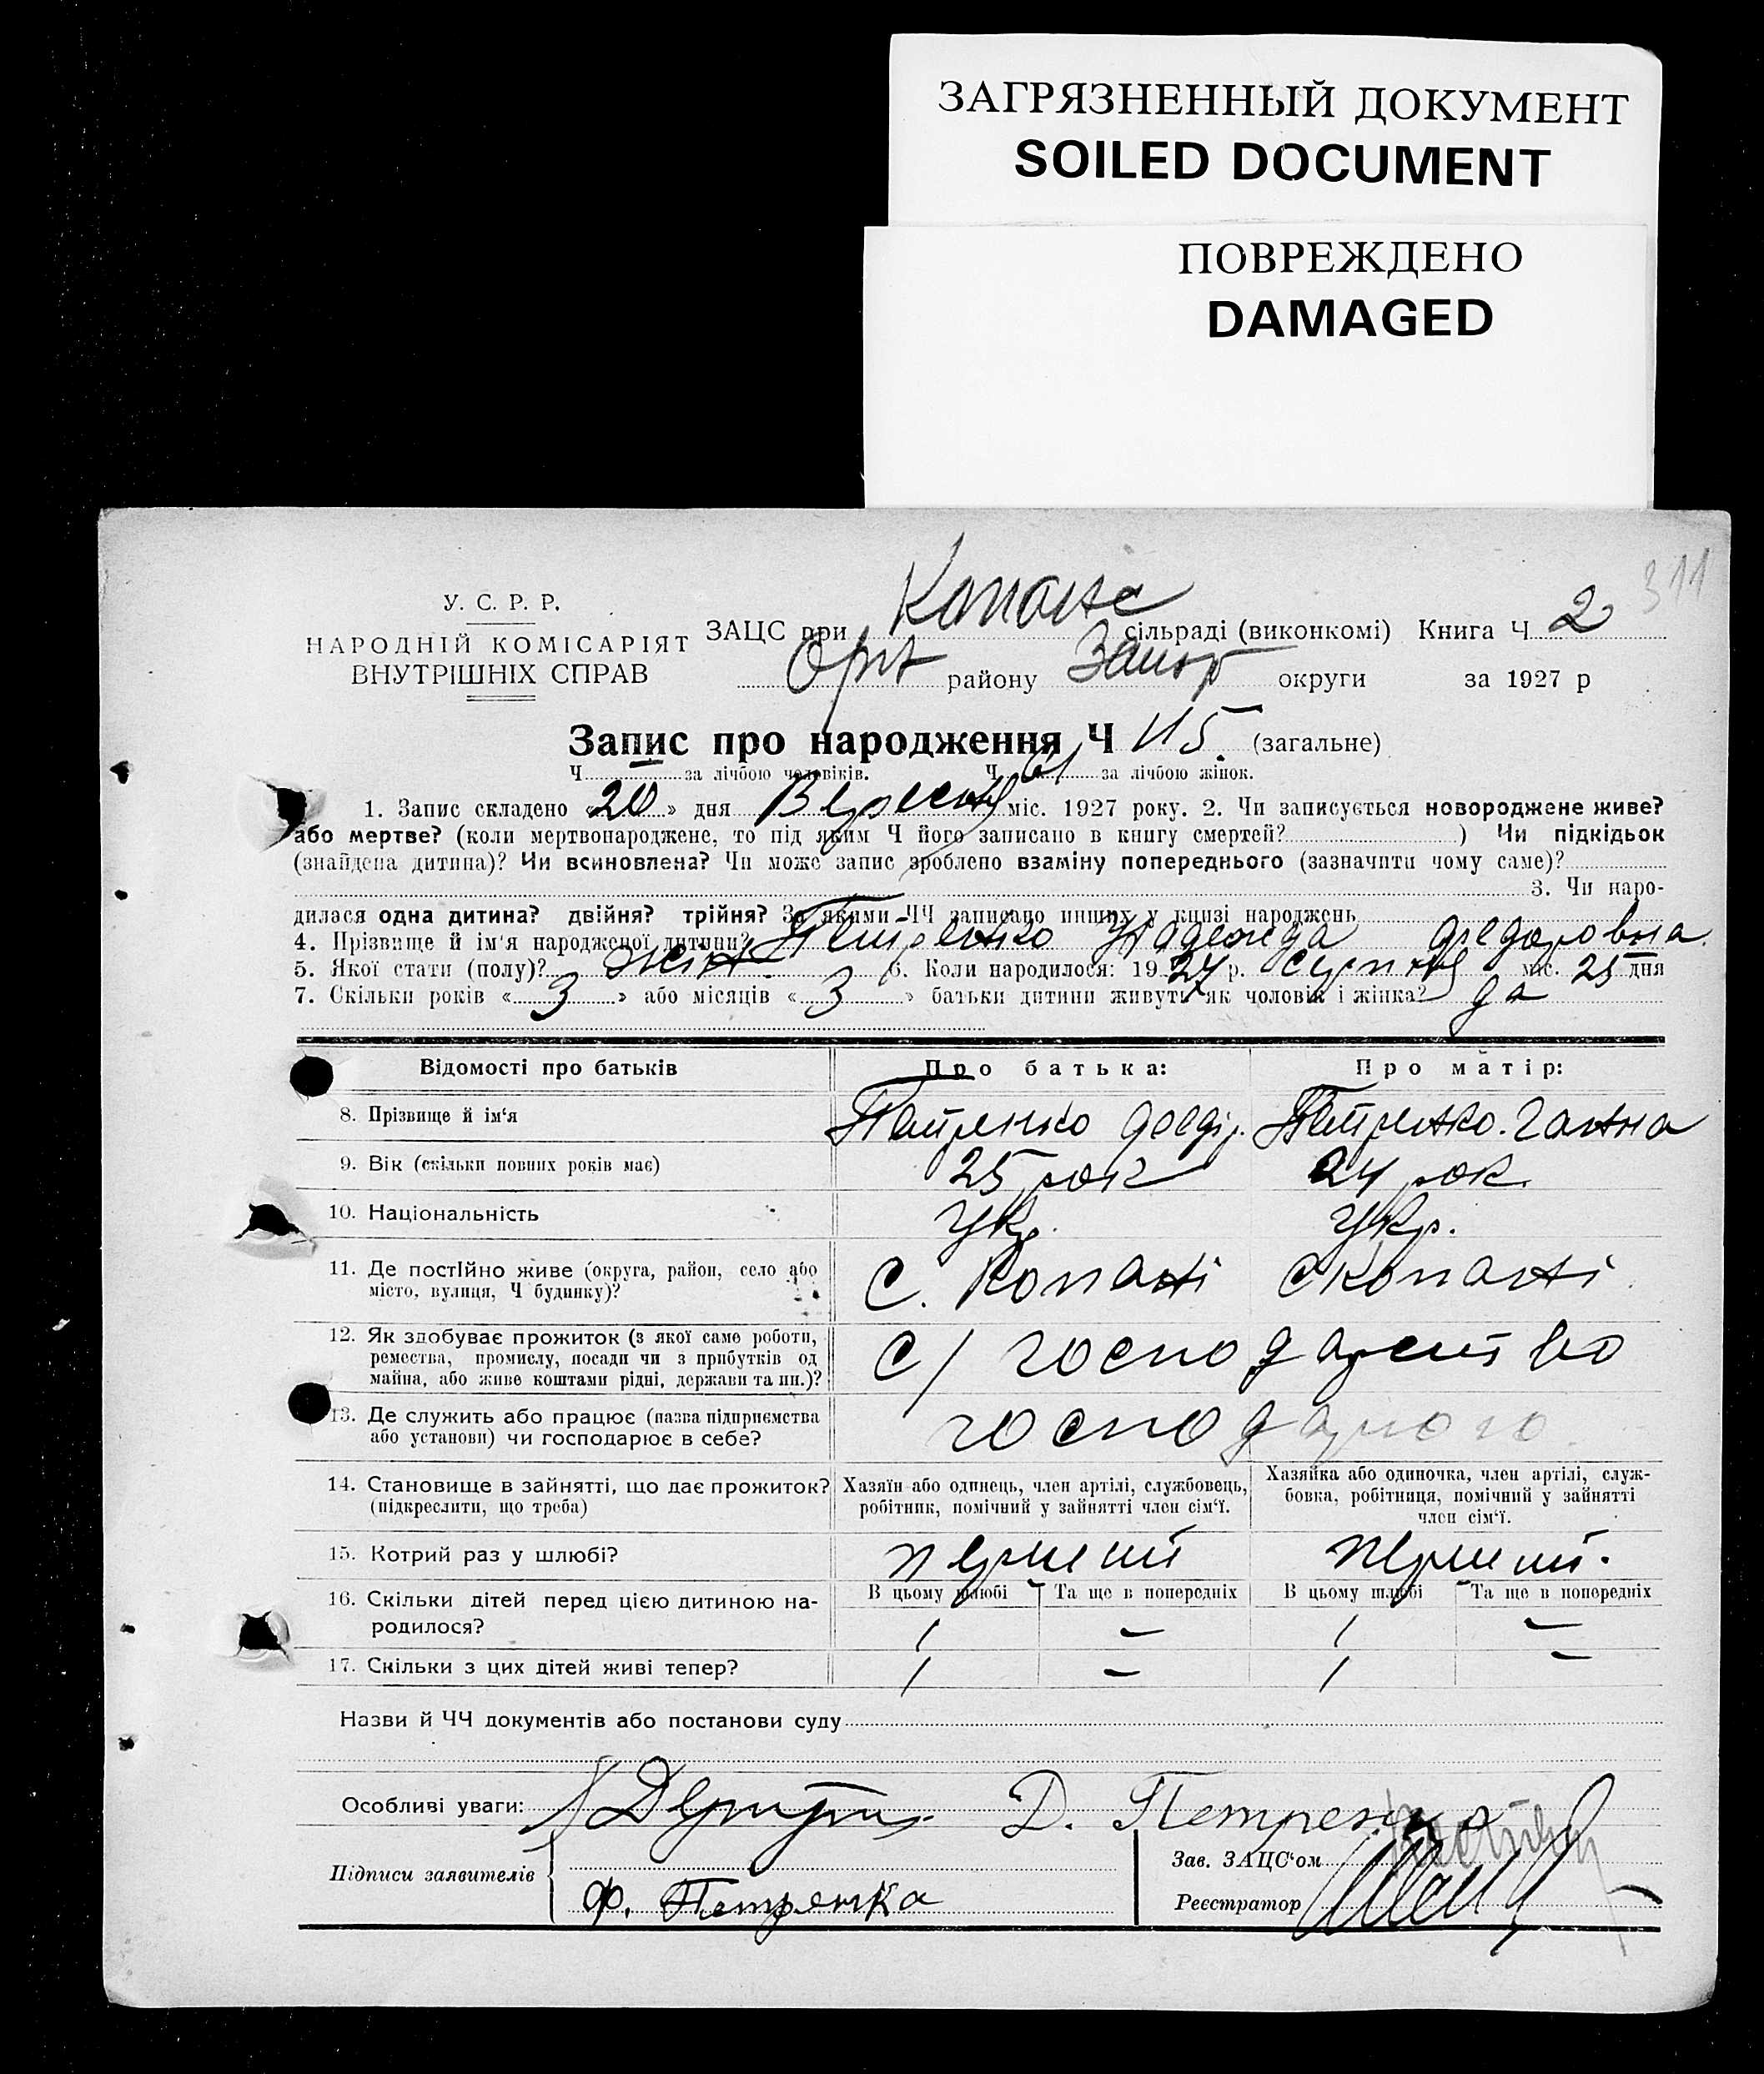 ЗАГРЯЗНЕННЫЙ ДОКУМЕНТ
SOILED DOCUMENT
ПОВРЕЖДЕНО
DAMAGED
311
У. С. Р. Р.
НАРОДНІЙ КОМІСАРІЯТ
ВНУТРІШНІХ СПРАВ
ЗАЦС при Копане сільраді (виконкомі) Книга Ч 2
Оріх району Запор округи за 1927 р
Запис про народження Ч 115 (загальне)
Ч за лічбою чоловіків. Ч 61 за лічбою жінок.
1. Запис складено «20» дня Вересня міс. 1927 року. 2. Чи записується новороджене живе?
або мертве? (коли мертвонароджене, то під яким Ч його записано в книгу смертей? ) Чи підкідьок
(знайдена дитина)? Чи всиновлена? Чи може запис зроблено взаміну попереднього (зазначити чому саме)?
3. Чи наро-
дилася одна дитина? двійня? трійня? За якими ЧЧ записано инших у книзі народжень
4. Прізвище й ім'я народженої дитини? Петренко Надежда Федоровна.
5. Якої стати (полу)? жін. 6. Коли народилося: 1927 р. серпня міс. 25 дня
7. Скільки років «3» або місяців «3» батьки дитини живуть як чоловік і жінка? да
Відомості про батьків Про батька: Про матір:
8. Прізвище й ім'я Петренко Федір. Петренко. Ганна
9. Вік (скільки повних років має) 25 рок 24 рок.
10. Національність Укр. Укр.
11. Де постійно живе (округа, район, село або
місто, вулиця, Ч будинку)? С. Копані С Копані
12. Як здобуває прожиток (з якої саме роботи,
ремества, промислу, посади чи з прибутків од
майна, або живе коштами рідні, держави та ин.)? С/ господарство
13. Де служить або працює (назва підприємства
або установи) чи господарює в себе?
14. Становище в зайнятті, що дає прожиток?
(підкреслити, що треба)
Хазяїн або одинець, член артілі, службовець,
робітник, помічний у зайнятті член сім'ї.
Хазяйка або одиночка, член артілі, служ-
бовка, робітниця, помічний у зайнятті
член сім'ї.
15. Котрий раз у шлюбі? перший перший.
В цьому шлюбі Та ще в попередніх В цьому шлюбі Та ще в попередніх
16. Скільки дітей перед цією дитиною на-
родилося? 1 – 1 –
17. Скільки з цих дітей живі тепер? 1 – 1 –
Назви й ЧЧ документів або постанови суду
Особливі уваги: Д. Петренко
Підписи заявителів
Ф. Петренка
Зав. ЗАЦС'ом
Реєстратор